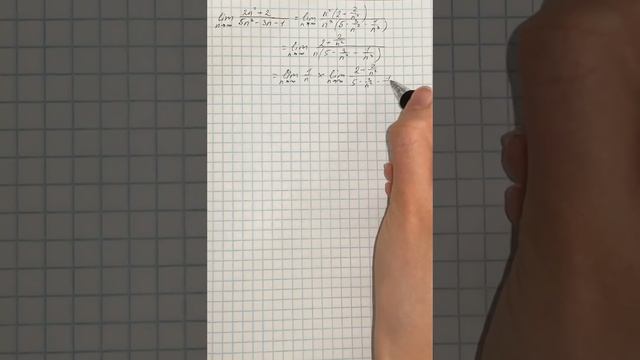 lim n→∞ (2n² + 2)/(5n³ - 3n - 1) = lim n→∞ n²(2 - 2/n²)/n³(5 - 3/n² - 1/n³)
= lim n→∞ (2 + 2/n²)/n(5 - 3/n² - 1/n³)
= lim n→∞ 1/n × lim n→∞ (2 - 2/n²)/(5 - 3/n² - 1